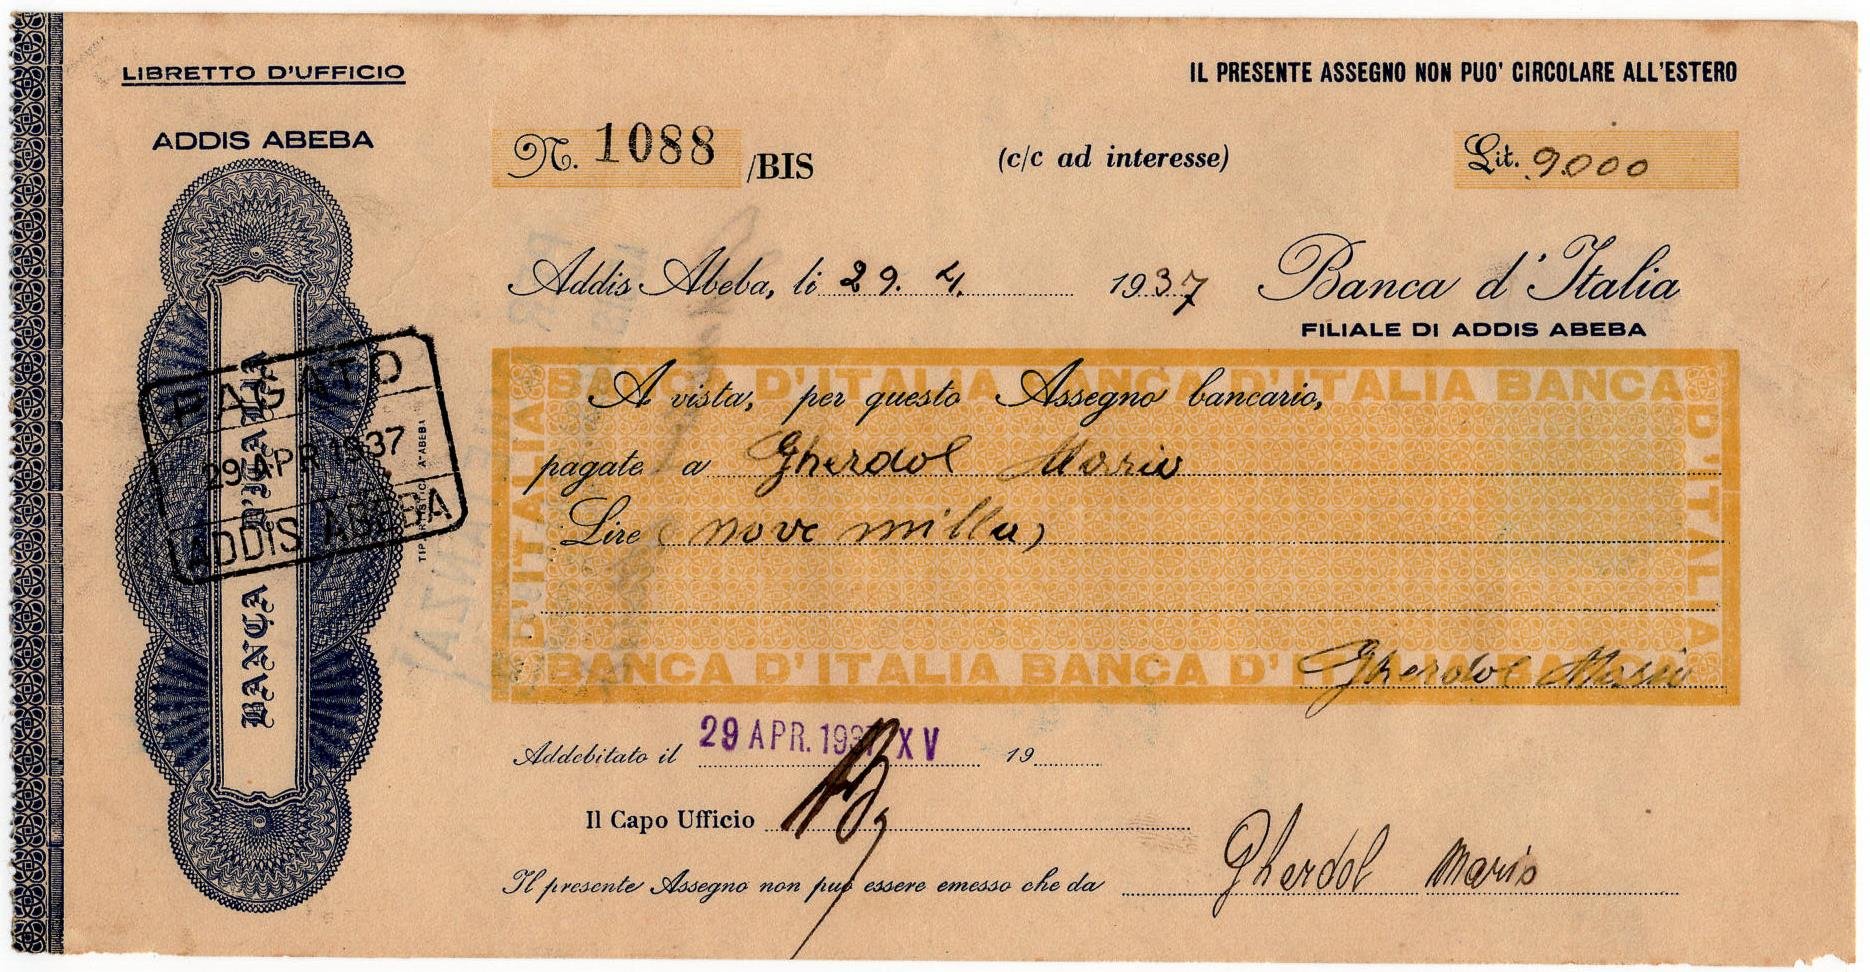 LIBRETTO D'UFFICIO
IL PRESENTE ASSEGNO NON PUO' CIRCOLARE ALL'ESTERO
ADDIS ABEBA
N. 1088 /BIS
(c/c ad interesse)
Lit. 9.000
Addis Abeba, li 29. 4. 1937
Banca d'Italia
FILIALE DI ADDIS ABEBA
BANCA D'ITALIA BANCA D'ITALIA BANCA
D'ITALIA
D'ITALIA
A vista, per questo Assegno bancario,
pagate a Gherdol Mario
Lire (nove milla)
BANCA D'ITALIA BANCA D'ITALIA BANCA
Gherdol Mario
PAGATO
29 APR 1937
ADDIS ABEBA
BANCA D'ITALIA
Addebitato il 29 APR. 1937 XV 19
Il Capo Ufficio
Il presente Assegno non può essere emesso che da Gherdol Mario